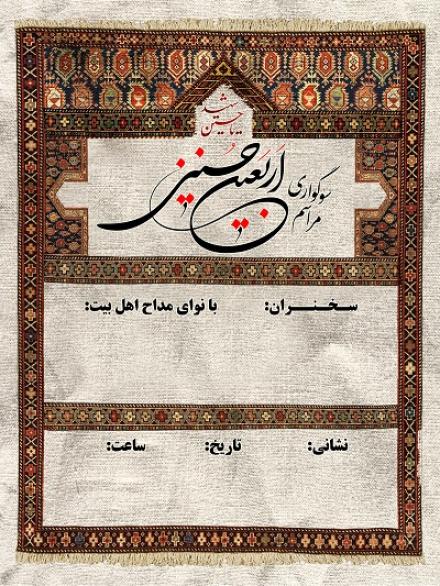 یا حسین شهید
مراسم سوگواری
اَربَعین حُسَینی
سخنران:
با نوای مداح اهل بیت:
نشانی:
تاریخ:
ساعت: